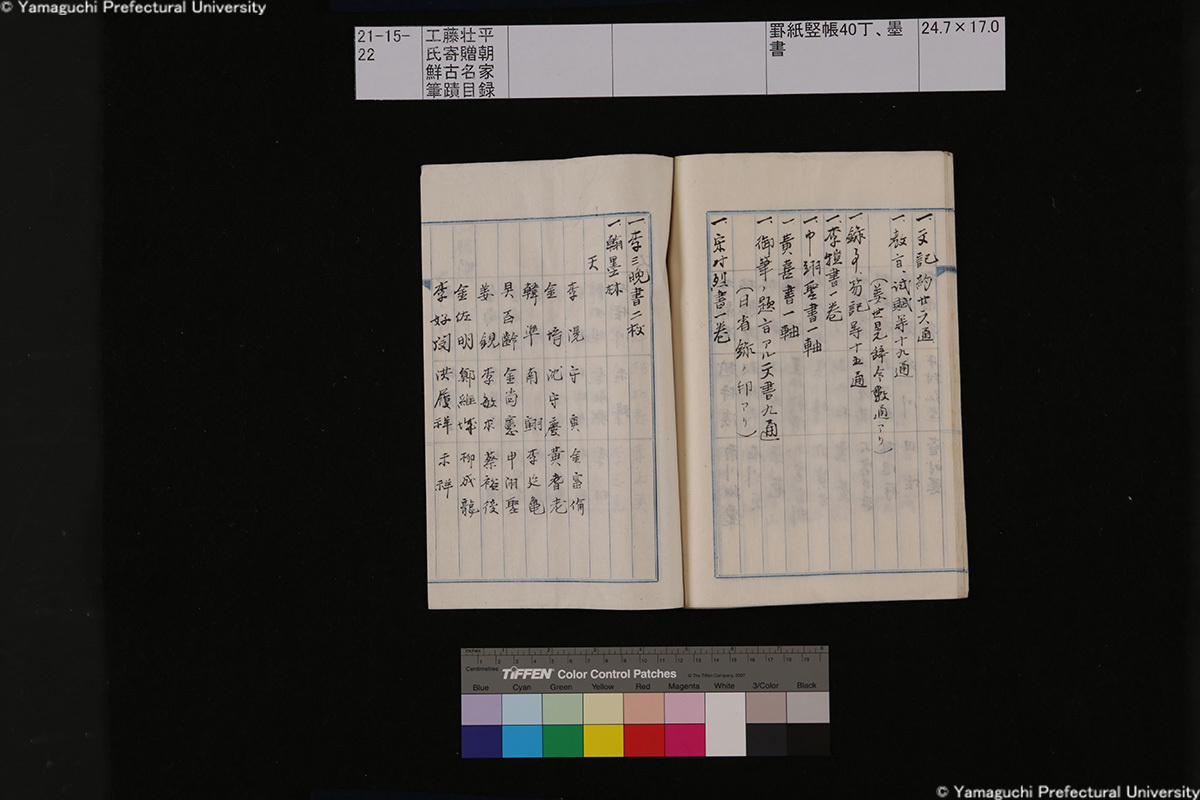 © Yamaguchi Prefectural University
21-15-
22
工藤壮平
氏寄贈朝
鮮古名家
筆蹟目録
罫紙竪帳40丁、墨
書
24.7×17.0
一、文記約廿六通
一、教旨、試賦等十九通
(姜世晃辞令数通アリ)
一、録事、箚記等十五通
一、李慎書一巻
一、申翊聖書一軸
一、黄喜書一軸
一、御筆ノ題言アル文書九通
(日省録ノ印アリ)
一、宋時烈書一巻
一、李三晩書二枚
一、翰墨林
天
李滉 守真 金富倫
金堉 沈守慶 黄耆老
韓準 南翾 李山龜
具百齡 金尚憲 申翊聖
姜鋧 李敏求 蔡裕後
金佐明 鄭維城 柳成龍
李好閔 洪履祥 示祥
Centimetres
TIFFEN Color Control Patches
© The Tiffen Company, 2007
Blue Cyan Green Yellow Red Magenta White 3/Color Black
© Yamaguchi Prefectural University